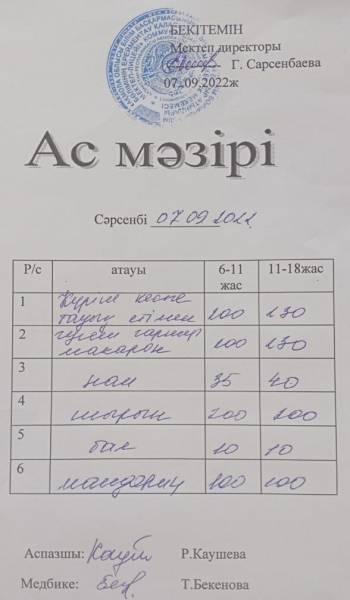 БЕКІТЕМІН
Мектеп директоры
Г. Сарсенбаева
07.09.2022ж
Ас мәзірі
Сәрсенбі 07.09.2022
Р/с атауы 6-11 жас 11-18жас
1 Күріш кеспе тауық етімен 200 250
2 гарнир макарон 100 150
3 нан 35 40
4 шырын 200 200
5 бал 10 10
6 мандарин 100 100
Аспазшы: Р.Каушева
Медбике: Т.Бекенова